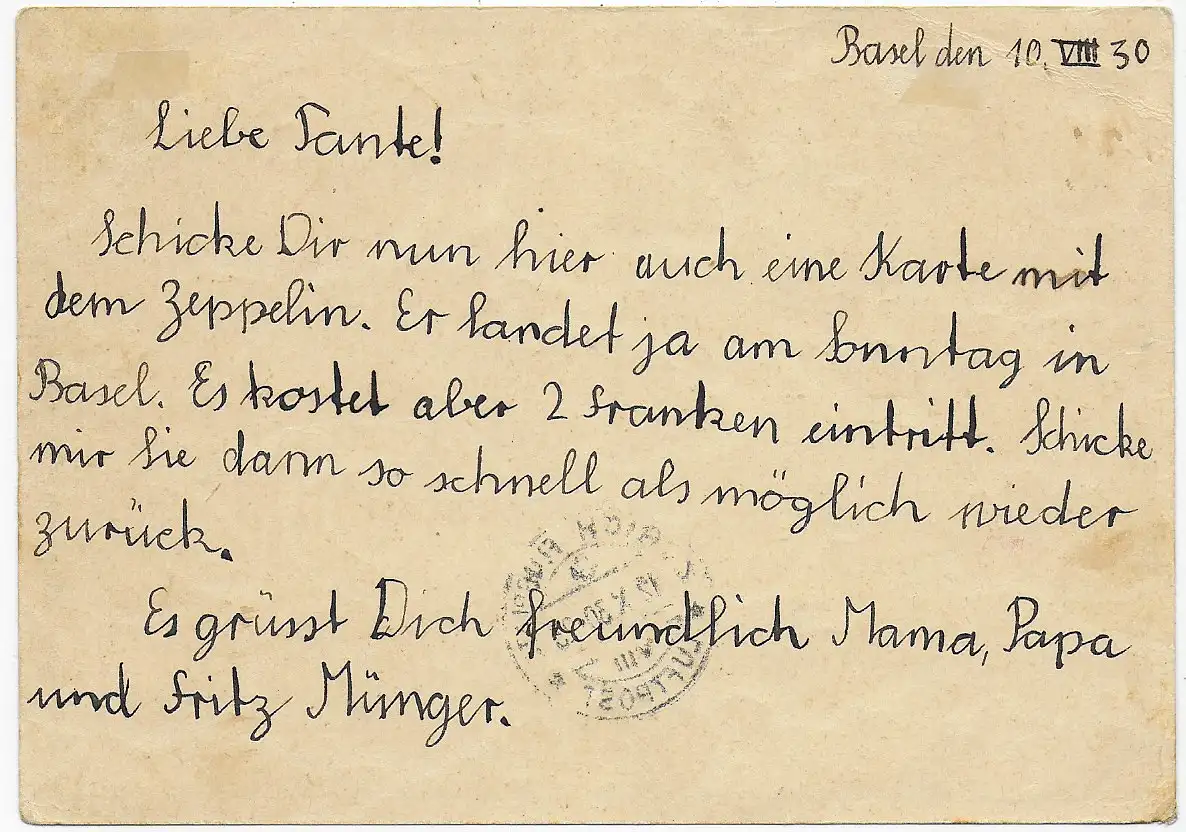 Basel den 10. VIIII 30
Liebe Tante!
Schicke Dir nun hier auch eine Karte mit
dem Zeppelin. Er landet ja am Sonntag in
Basel. Es kostet aber 2 Franken eintritt. Schicke
mir Sie dann so schnell als möglich wieder
zurück.
Es grüsst Dich freundlich Mama, Papa
und Fritz Münger.